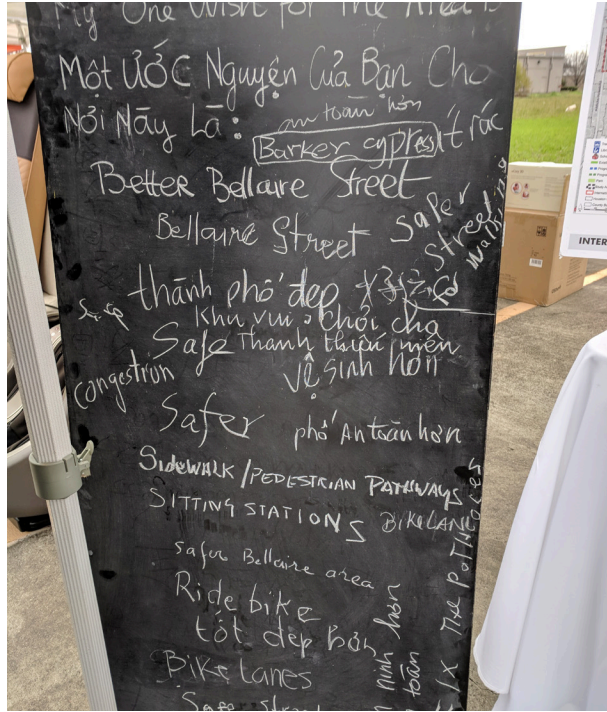 My One Wish for The Area is
Một ƯỚC Nguyện Của Bạn Cho
Nơi Này Là:
an toàn hơn
Barker cypress
ít rác
Better Bellaire Street
Bellaire Street
Safer
Street
Walking
thành phố đẹp
khu vui chơi cho
Safe thanh thiếu niên
congestion
vệ sinh hơn
Safer
phố An toàn hơn
SIDEWALK/PEDESTRIAN PATHWAYS
SITTING STATIONS
BIKE LANE
Safer Bellaire area
Ride bike
tốt đẹp
Bike Lanes
Safer Street
ninh hơn
toàn
The Potholes
INTER